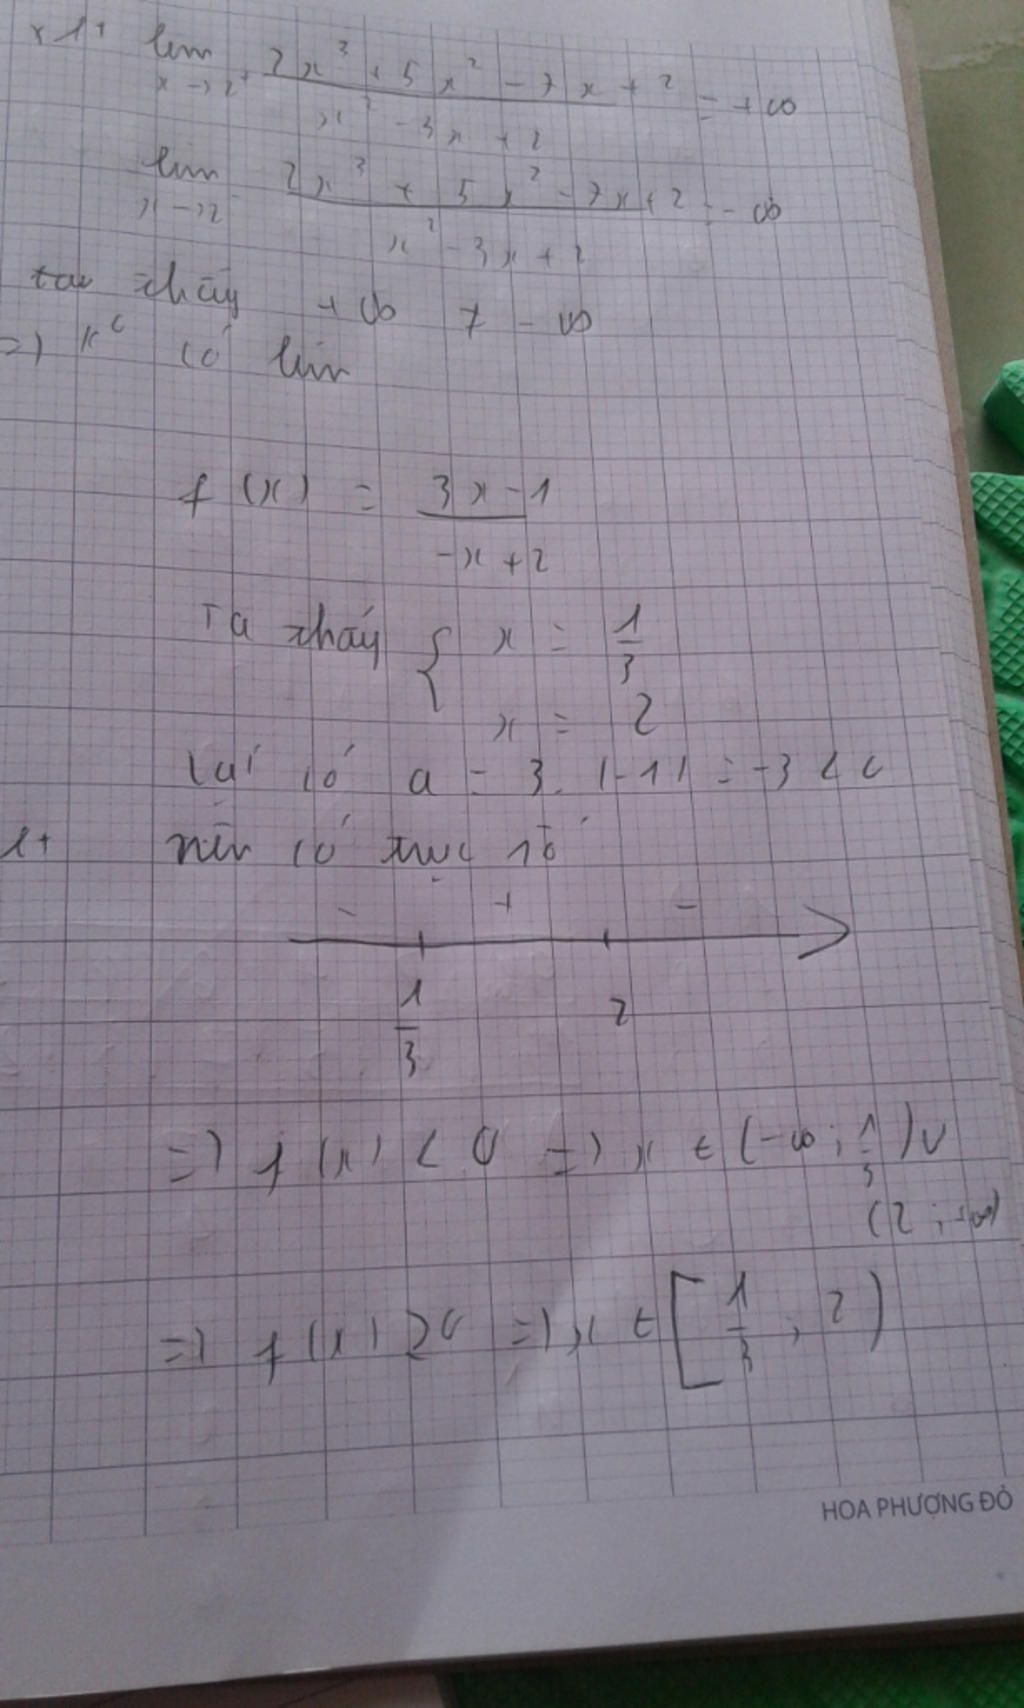 lim x→2⁺ (2x³ + 5x² - 7x + 2)/(x² - 3x + 2) = +∞
lim x→2⁻ (2x³ + 5x² - 7x + 2)/(x² - 3x + 2) = -∞
ta thấy +∞ ≠ -∞
=> k° có lim
f(x) = (3x - 1)/(-x + 2)
Ta thấy { x = 1/3
x = 2
lại có a = 3.(-1) = -3 < 0
nên có trục số
- + -
1/3 2
=> f(x) < 0 => x ∈ (-∞; 1/3) ∪
(2; +∞)
=> f(x) ≥ 0 => x ∈ [1/3; 2)
HOA PHƯỢNG ĐỎ